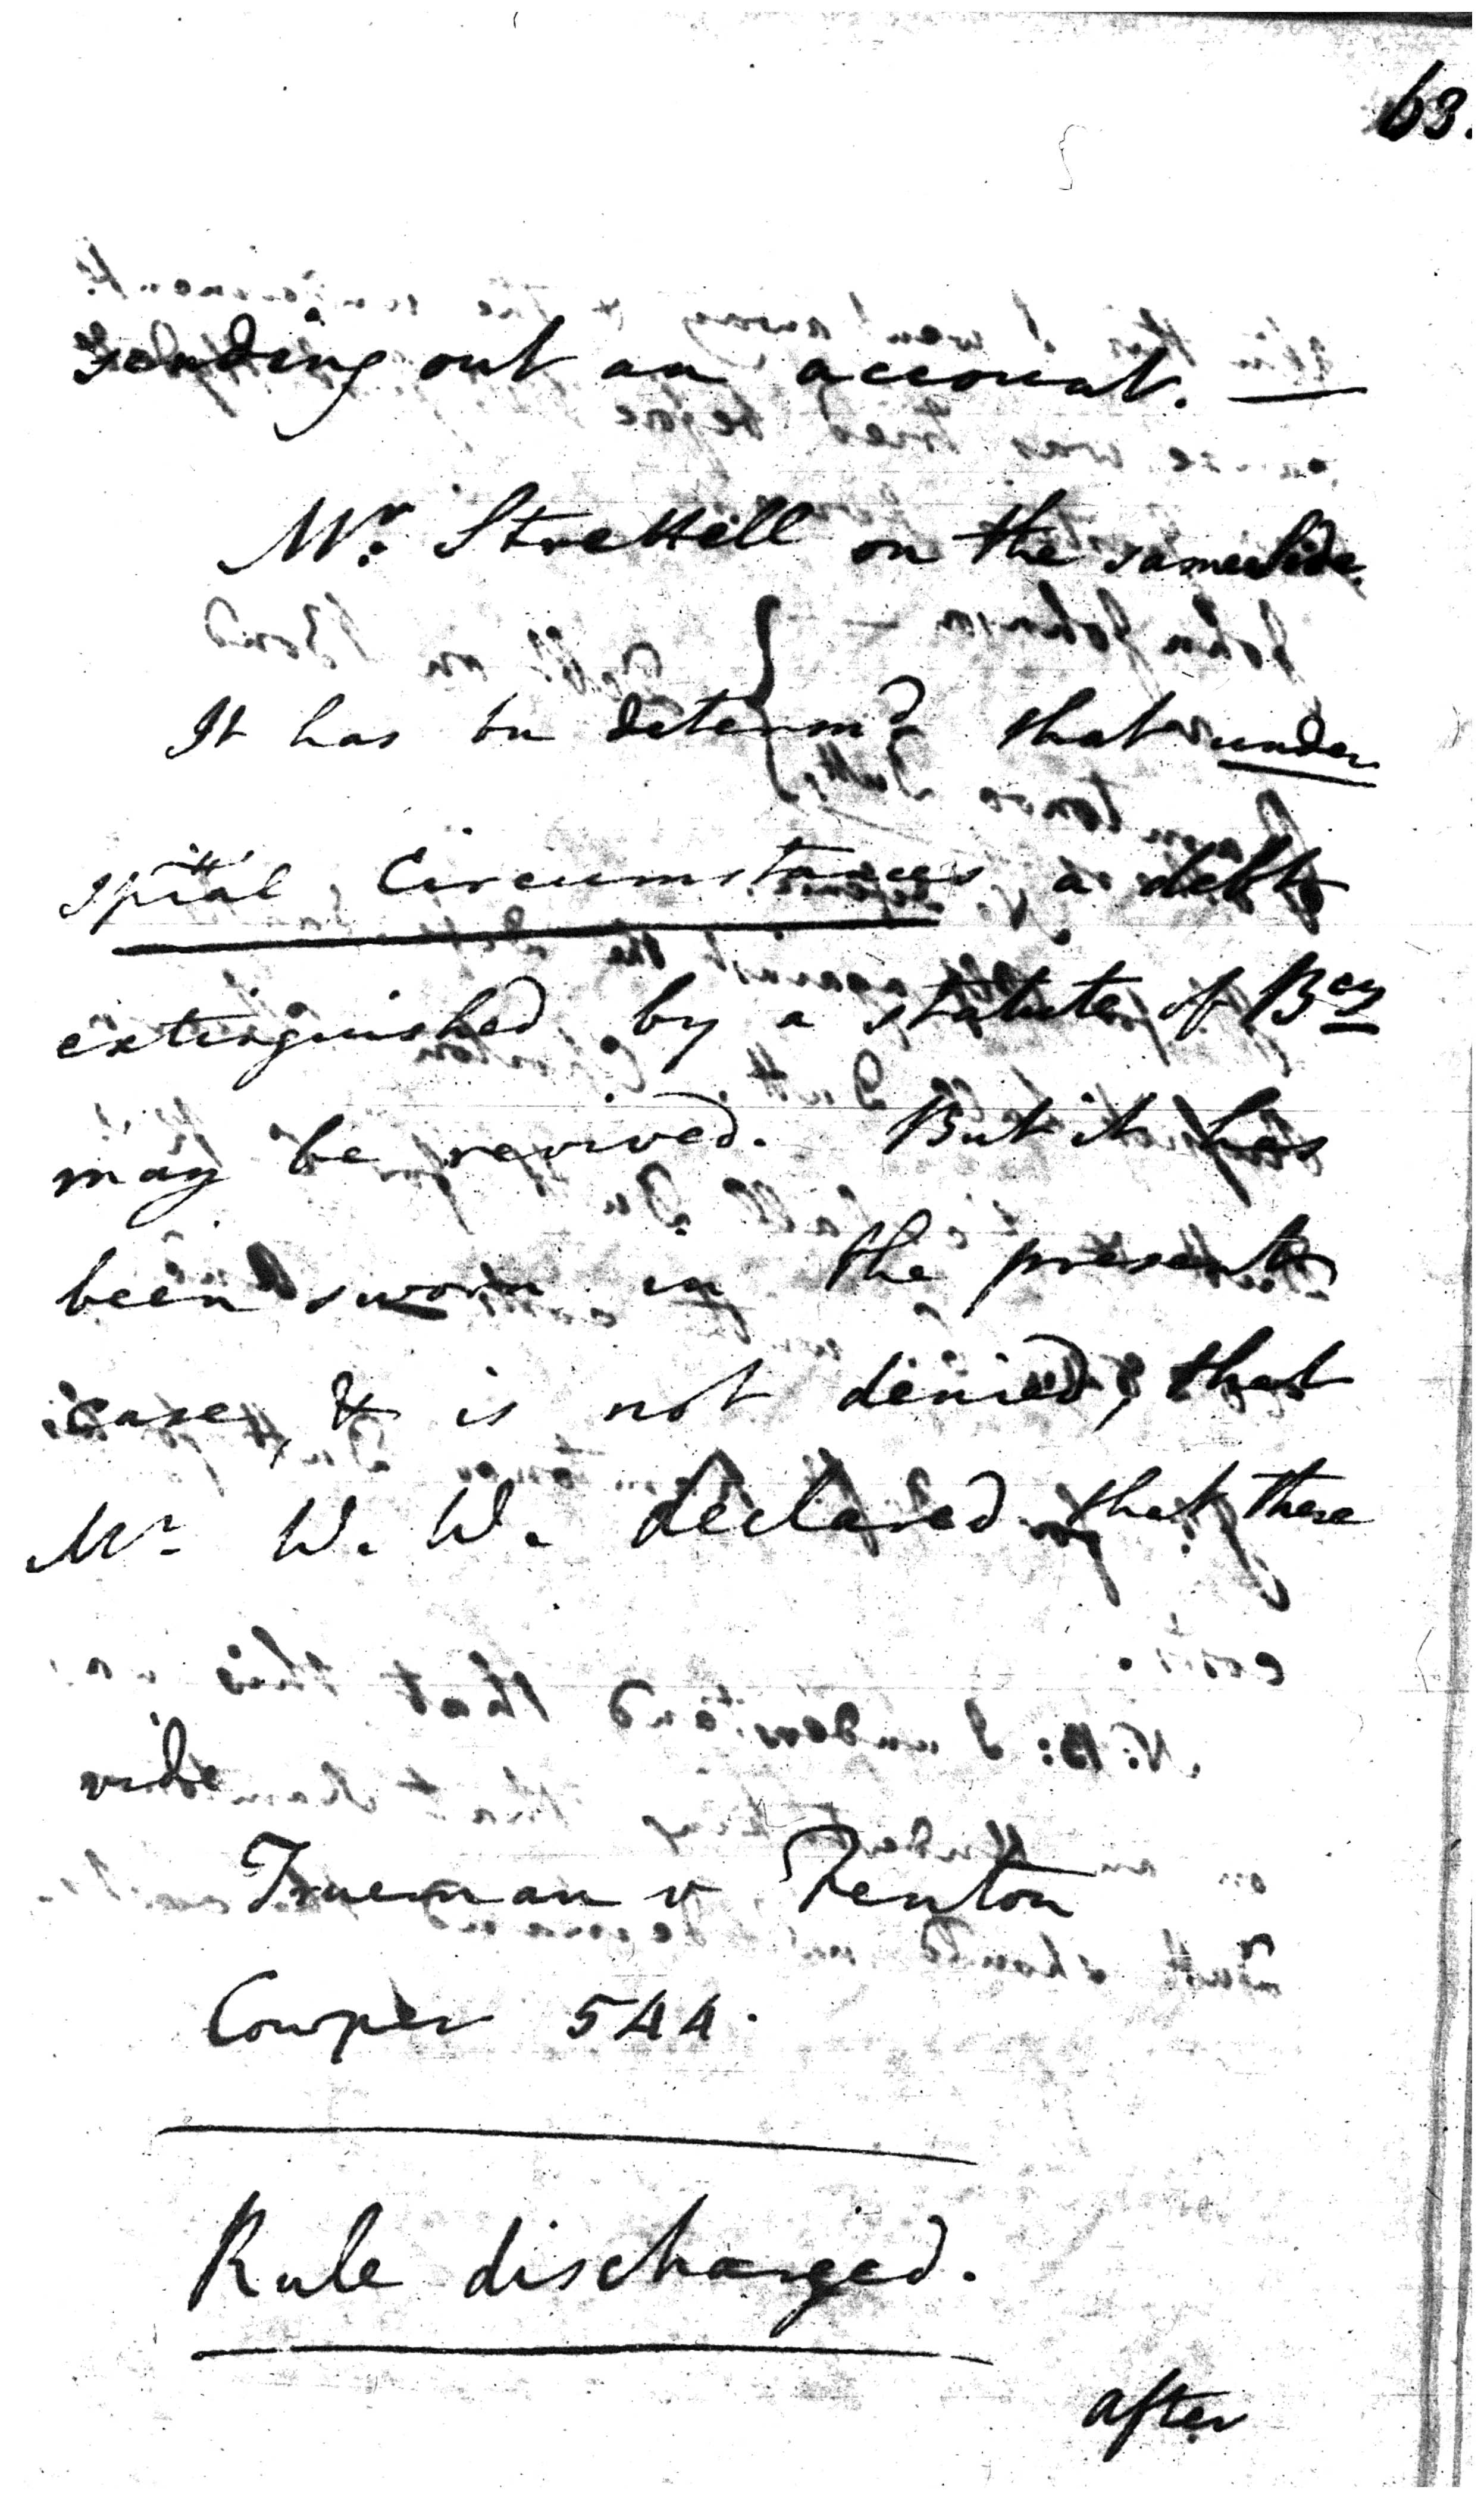 63.
sending out an account. —
Mr. Strettell on the same side.
It has bn determd that under
sptial Circumstances a debt
extinguished by a statute of Bcy
may be revived. But it has
been sworn in the present
case, & is not denied, that
Mr W. W. declared that there
vide
Trueman v Fenton
Cowper 544.
Rule discharged.
after